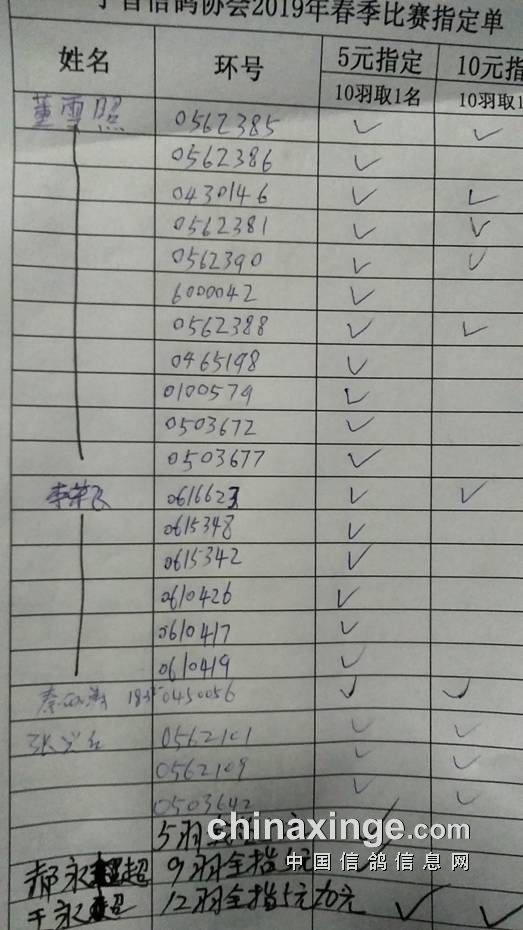 信鸽协会2019年春季比赛指定单
姓名 环号 5元指定 10元指
10羽取1名 10羽取1
董雪照 0562385 ✓ ✓
0562386 ✓
0430146 ✓ ✓
0562381 ✓ ✓
0562390 ✓ ✓
6000042 ✓
0562388 ✓ ✓
0465198 ✓
0100579 ✓
0503672 ✓
0503677 ✓
李荣飞 0616623 ✓ ✓
0615348 ✓
0615342 ✓
0610426 ✓
0610417 ✓
0610419 ✓
秦 0450056 ✓ ✓
张 0562101 ✓ ✓
0562109 ✓ ✓
0503642 ✓ ✓
5羽 ✓
chinaxinge.com
中国信鸽信息网
郝永超 9羽全指5元 ✓
于永超 12羽全指5元10元 ✓ ✓